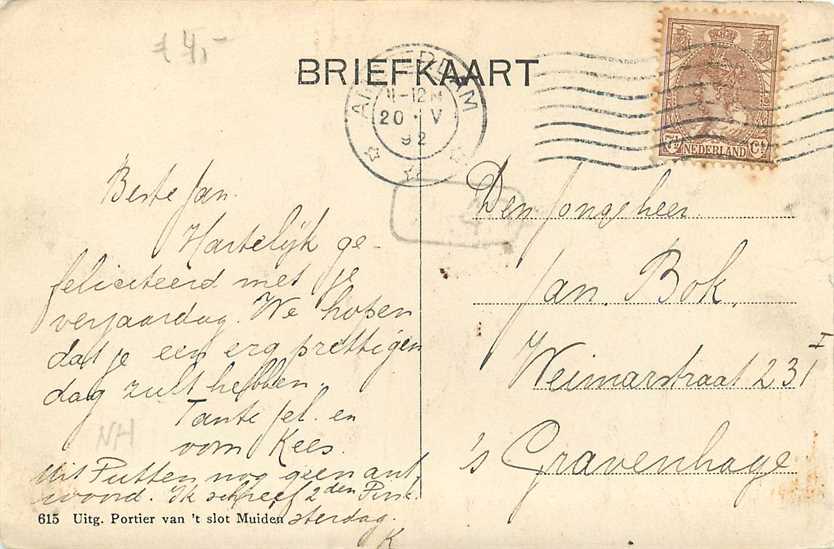 £ 4,-
BRIEFKAART
AMSTERDAM
11-12 M
20 · V
92
7½ NEDERLAND Ct
Beste Jan.
Hartelijk ge-
feliciteerd met je
verjaardag. We hopen
dat je een erg prettigen
dag zult hebben.
Tante Jel. en
oom Kees.
NH
Uit Putten nog geen ant
woord. Ik schreef 2den Pink
sterdag.
K
615 Uitg. Portier van 't slot Muiden
Den Jongeheer
Jan. Bok,
Weimarstraat 23 I
's Gravenhage